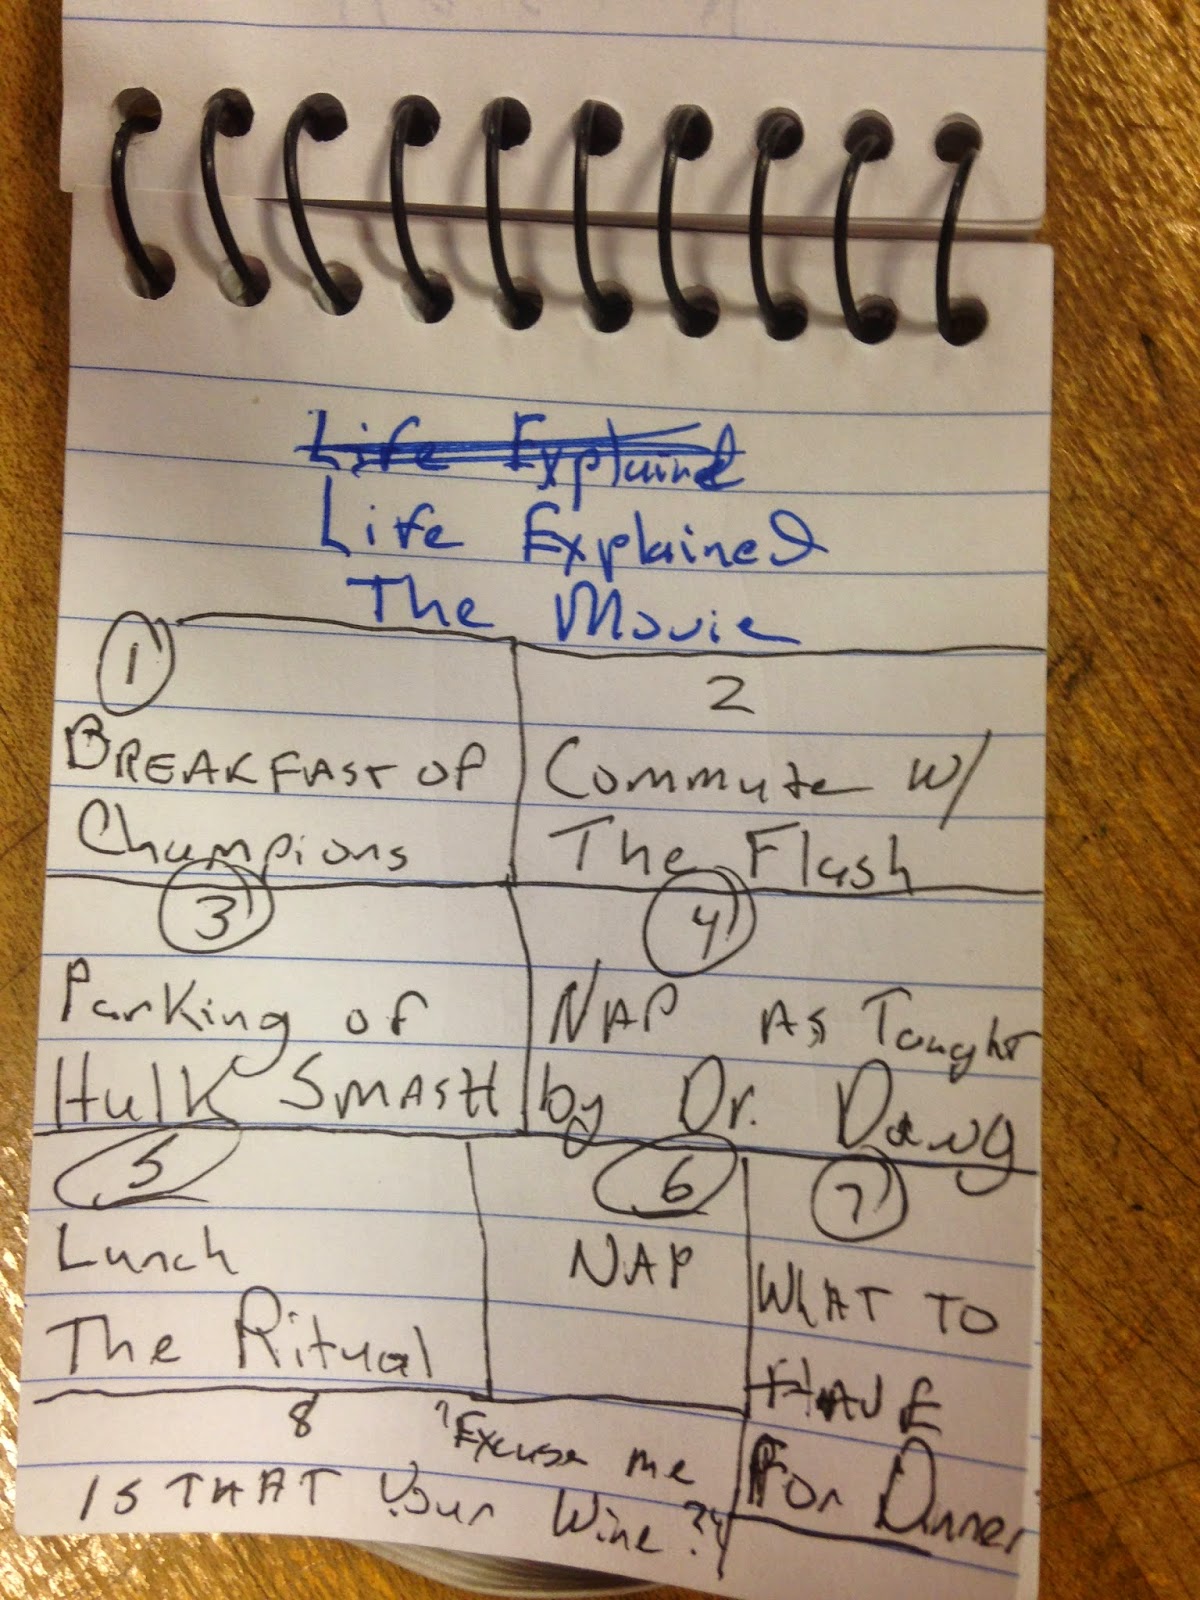 Life Explained
Life Explained
The Movie
1
BREAKFAST OF
Champions
2
Commute w/
The Flash
3
Parking of
Hulk SMASH
4
NAP As Taught
by Dr. Dawg
5
Lunch
The Ritual
6
NAP
7
WHAT TO
HAVE
For Dinner
8
"Excuse me
IS THAT Your Wine?"